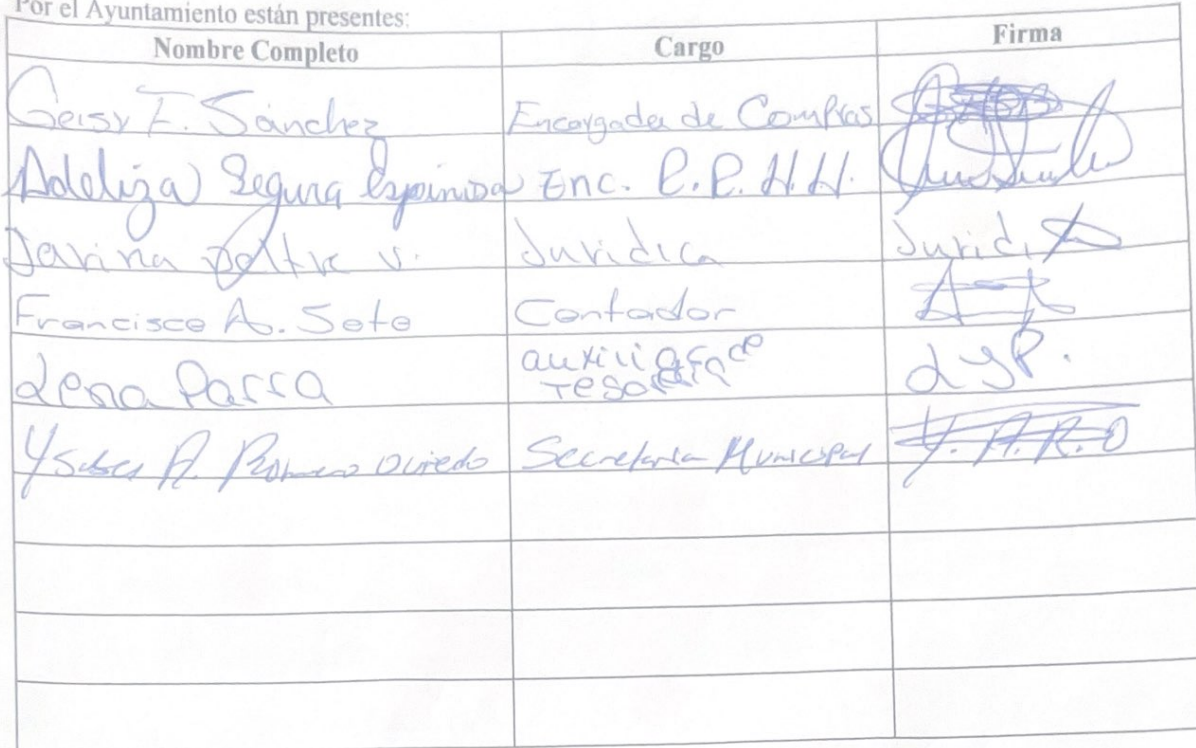 Por el Ayuntamiento están presentes:
Nombre Completo Cargo Firma
Geisy F. Sánchez Encargada de Compras
Adeliza Segura Espinosa Enc. R.R. H.H.
Darina v. Juridica Juridi
Francisco A. Soto Contador
Lena Parra auxiliar de tesoreria LYP.
Ysabel A. Romero Oviedo Secretaria Municipal Y.A.R.O